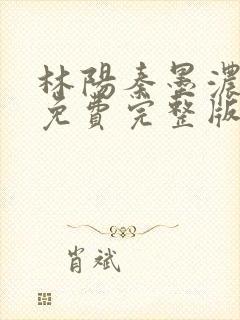 林陽秦墨濃
免費完整版
肖斌